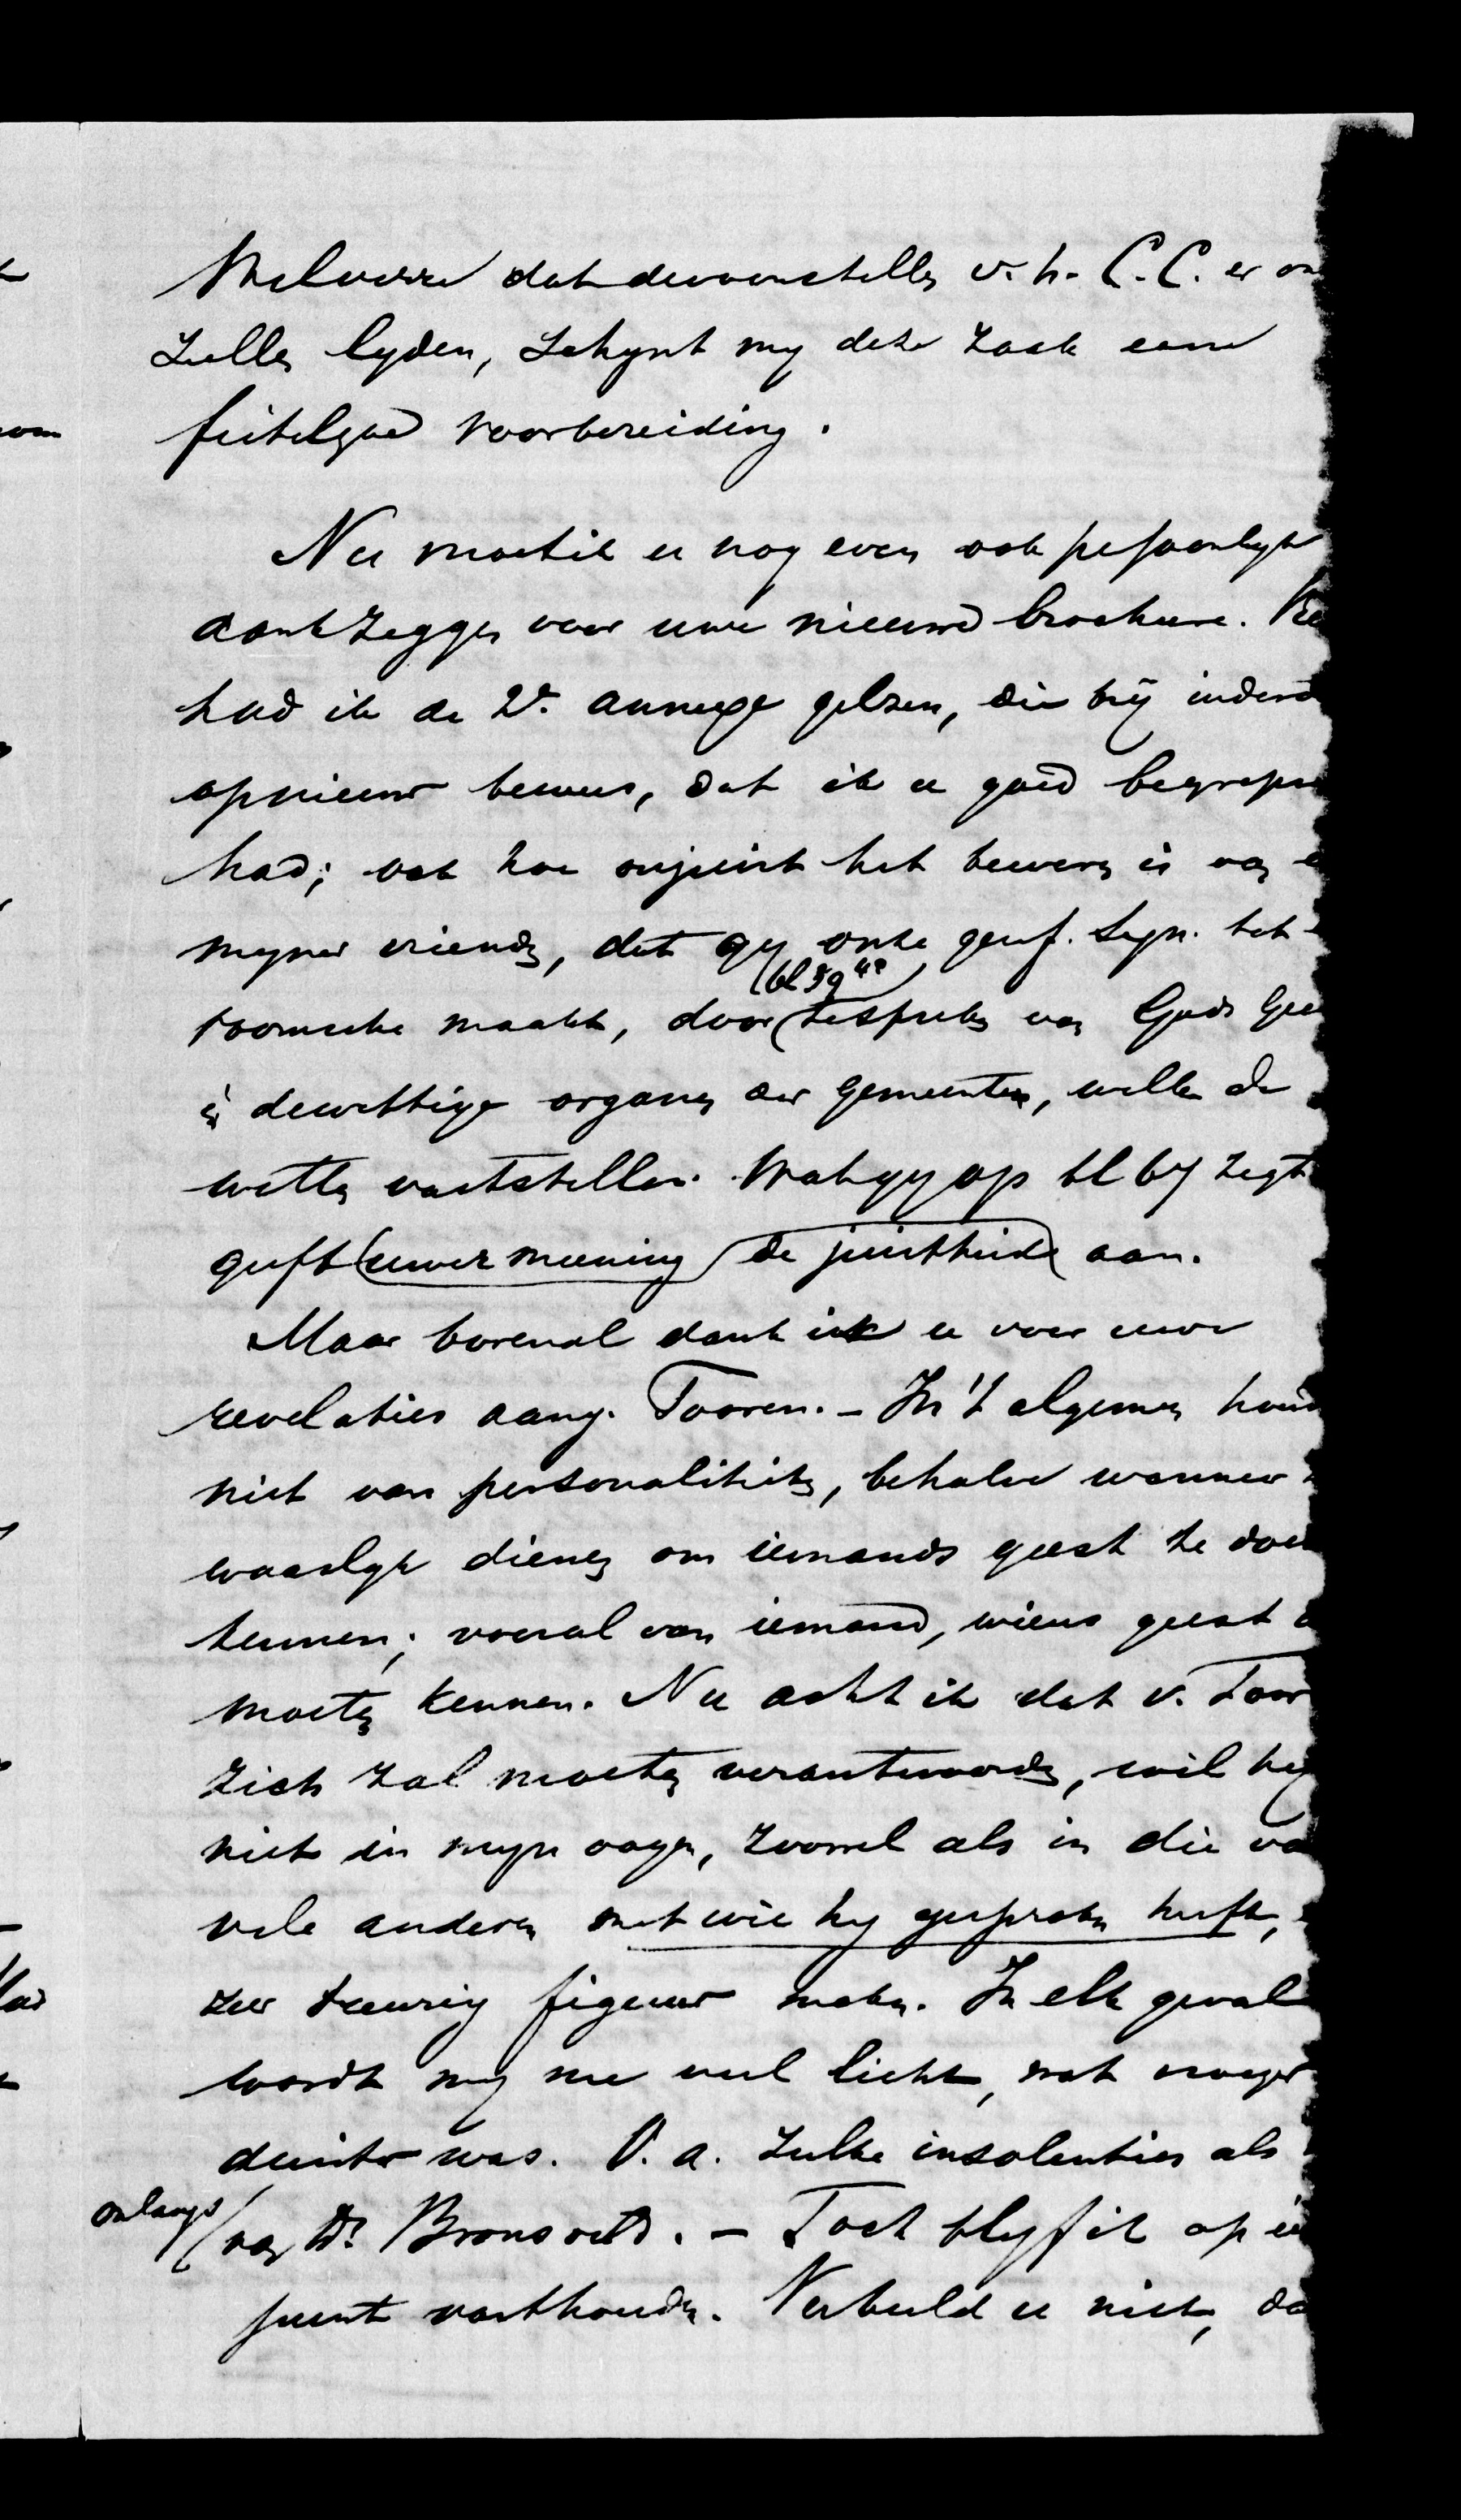 Welverre dat de voorstellen v. h. C.C. er on
zullen lyden, schynt my deze zaak eene
feitelyke voorbereiding.
Nu moet ik u nog even ook persoonlyk
dank zeggen voor uwe nieuwe brochure.
had ik de 2e annexe gelezen, die bij inderd
opnieuw bewees, dat ik u goed begrepen
had; ook hoe onjuist het beweren is van
myner vrienden, dat gy onze geref. Syn. tot
(bl 39 40)
roomsche maakt, door te spreken van Gods Gee
in de wettige organen der gemeenten, welke de
wetten vaststellen. Wat gy op bl 67 zegt
geeft uwer meening de juistheid aan.
Maar bovenal dank ik u voor uwe
revelaties aang. Tooren. - In 't algemeen houd
niet van personaliteiten, behalve wanneer
waarlyk dienen om iemands geest te doen
kennen; vooral van iemand, wiens geest
moeten kennen. Nu acht ik dat v. Toor
zich zal moeten verantwoorden, wil hy
niet in myn oogen, zoowel als in die va
vele anderen met wie hy gesproken heeft,
zeer treurig figuur maken. In elk geval
wordt my nu veel licht, wat vroeger
duister was. O.a. zulke insolenties als
onlangs
van Dr. Bronsveld. - Toch blyf ik op één
punt vasthouden. Verbeeld u niet, da